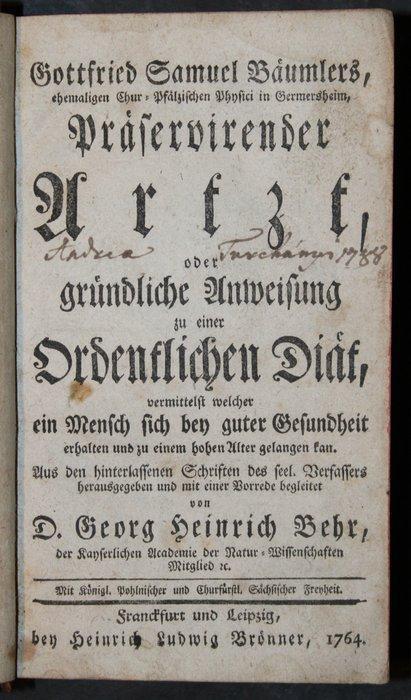 Gottfried Samuel Bäumlers,
ehemaligen Chur-Pfälzischen Physici in Germersheim,
Präservirender
Artzt,
Andrea Turchányi 1788
oder
gründliche Anweisung
zu einer
Ordentlichen Diät,
vermittelst welcher
ein Mensch sich bey guter Gesundheit
erhalten und zu einem hohen Alter gelangen kan.
Aus den hinterlassenen Schriften des seel. Verfassers
herausgegeben und mit einer Vorrede begleitet
von
D. Georg Heinrich Behr,
der Kayserlichen Academie der Natur-Wissenschaften
Mitglied ꝛc.
Mit Königl. Pohlnischer und Churfürstl. Sächsischer Freyheit.
Franckfurt und Leipzig,
bey Heinrich Ludwig Brönner, 1764.